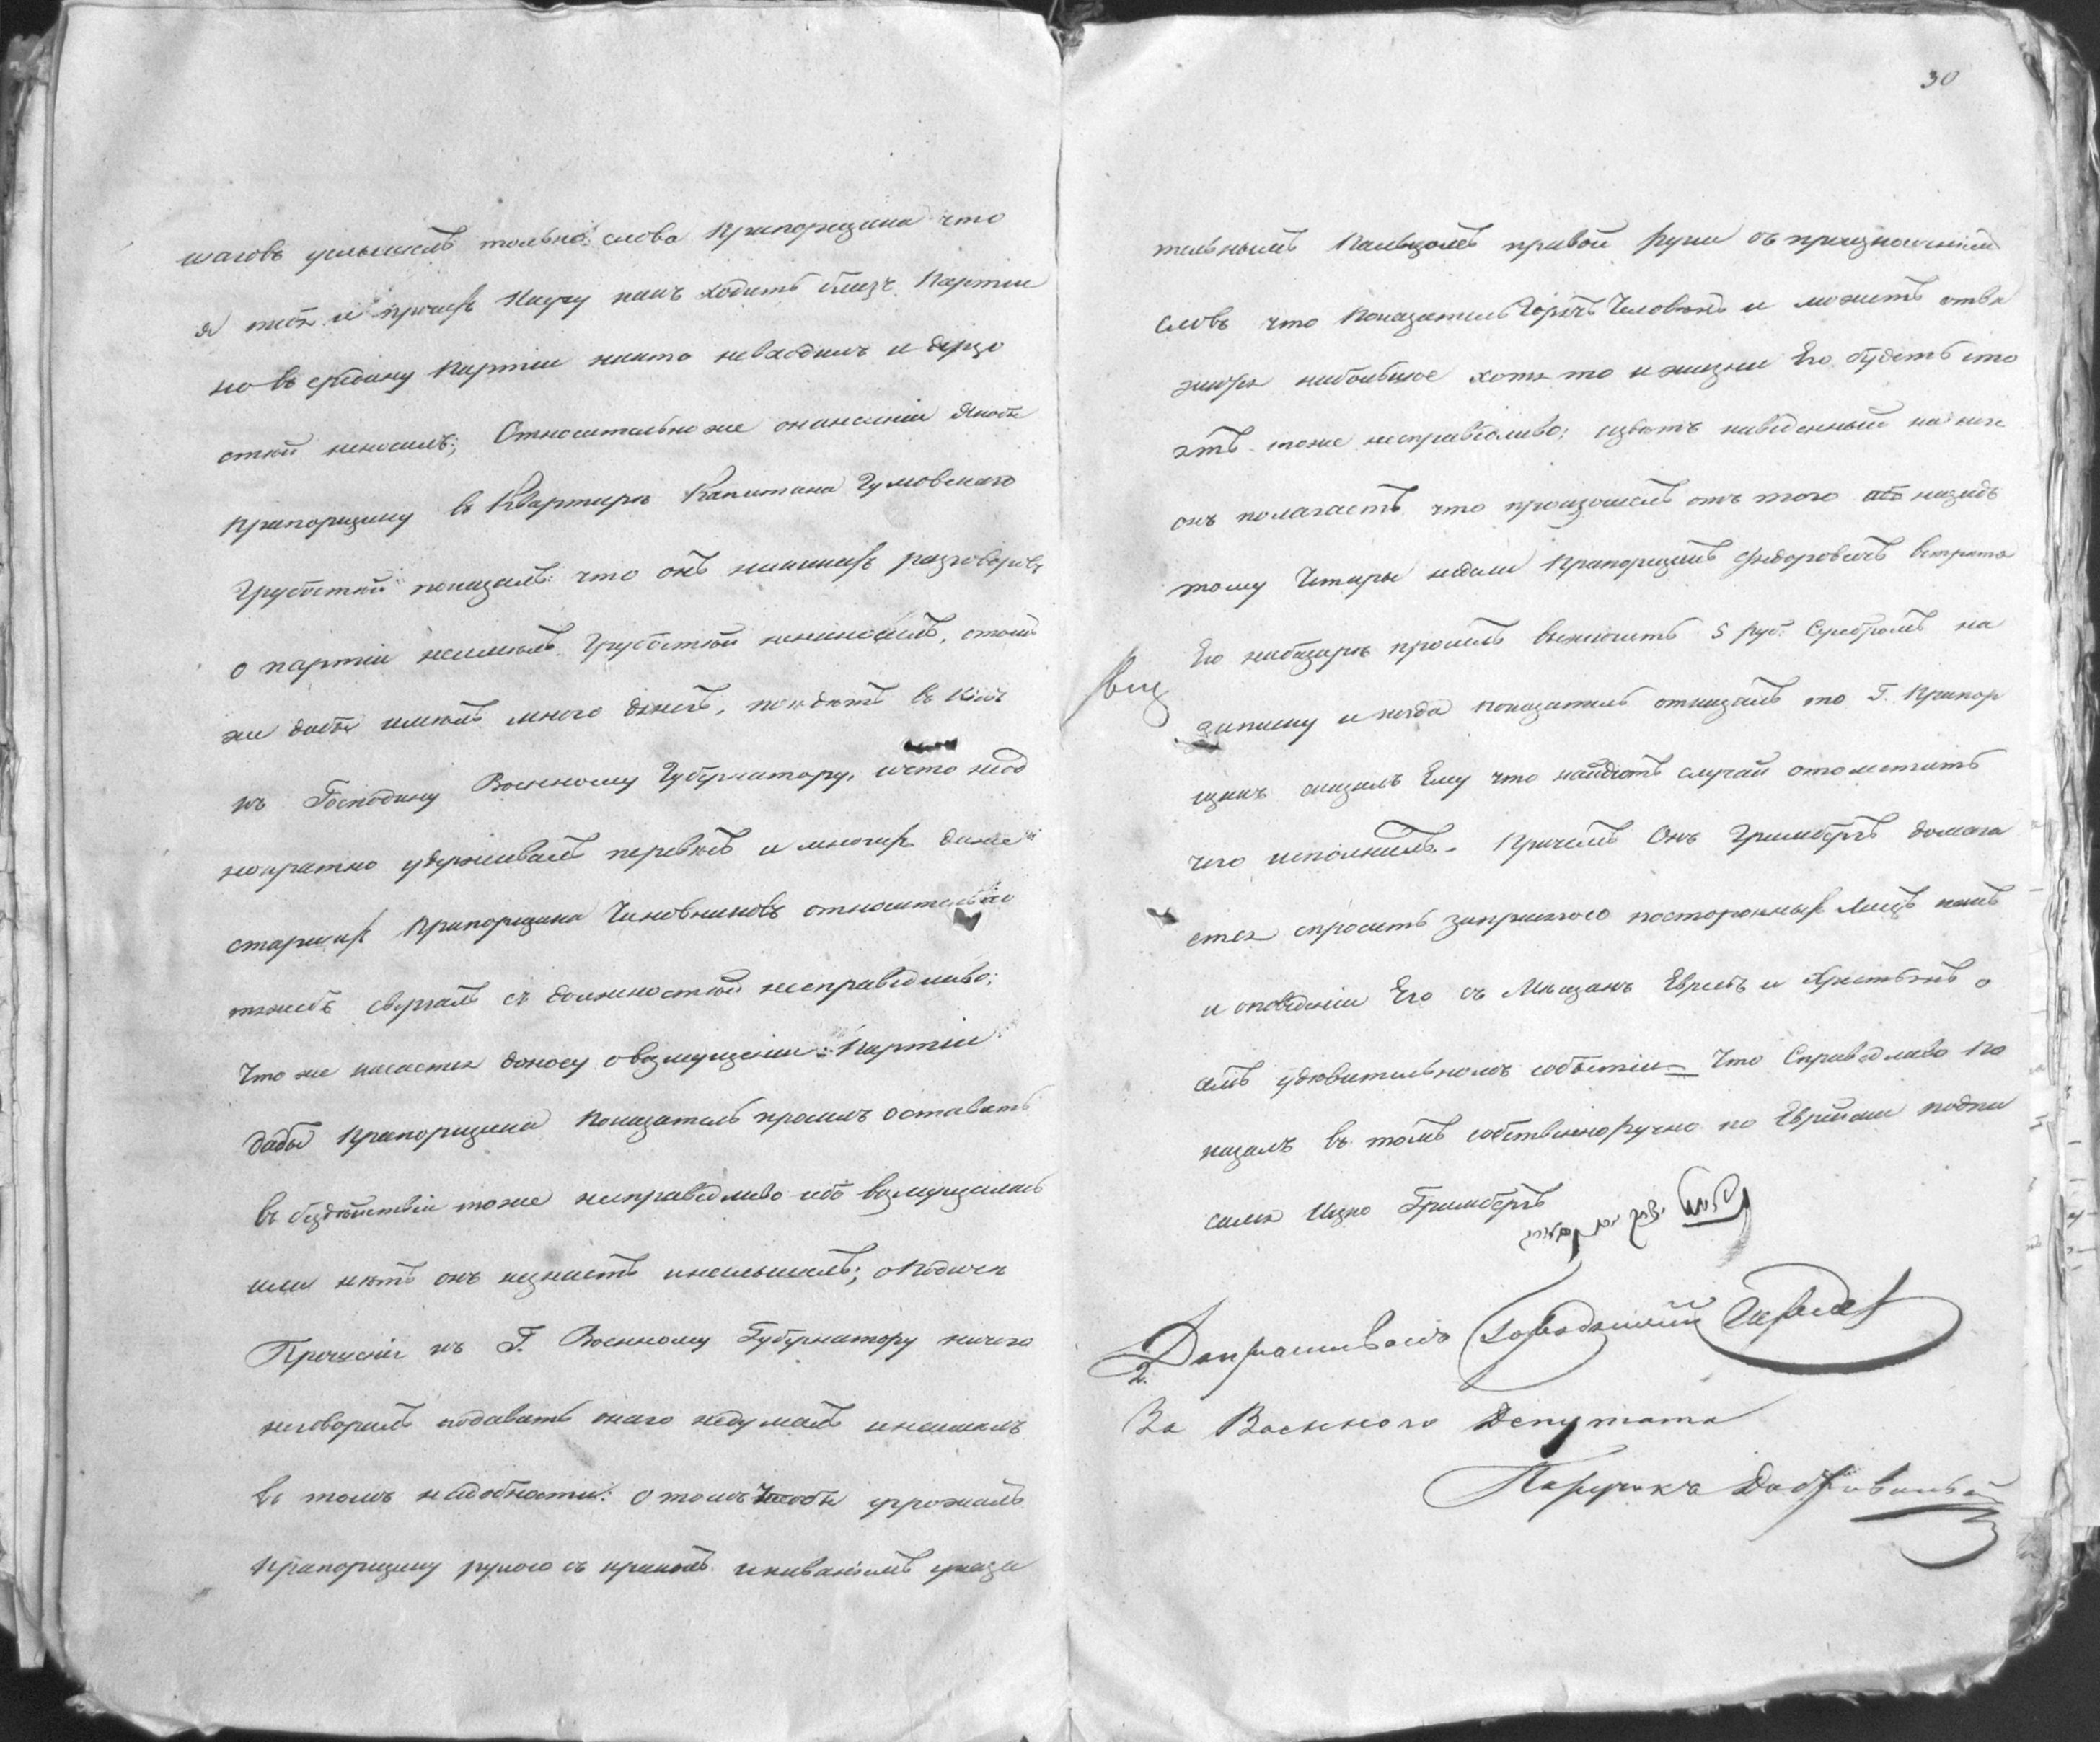 шаговъ услышалъ только слова Прапорщика что
я тебя и прочихъ Научу какъ ходить близъ Партіи
но въ средину Партіи никто невходилъ и дерзо
стей неносилъ; Относительно же онанесеніи якобы
Прапорщику въ Квартире Капитана Гумовскаго
Грубостей показалъ: что онъ никакихъ разговоровъ
о партіи неимелъ Грубостей ненаносилъ,
же дабы имелъ много денегъ, поедетъ въ Кіевъ
къ Господину Военному Губернатору, и что неод
нократно удерживалъ перевесъ и многихъ даже
старшихъ Прапорщика Чиновниковъ относительно
свергалъ съ должностей несправедливо;
Что же касается доносу овозмущеніи Партіи
дабы Прапорщика Показатель просилъ оставить
въ бездействіи тоже несправедливо ибо возмущалась
или нетъ онъ незнаетъ инеслышалъ; оПодаче
Прошенія къ Г. Военному Губернатору ничего
неговорилъ подавать онаго недумалъ инеимелъ
въ томъ надобности: о томъ чтобы угрожалъ
Прапорщику рукою съ крикомъ икиваніемъ указа
30
тельнымъ Пальцомъ правой руки съ произношеніемъ
словъ что Показатель Горячъ Человекъ и можетъ отва
житься небольшое хотя то и жизни Его будетъ сто
ить тоже несправедливо; изветъ наведенный на него
онъ полагаетъ что произошелъ отъ того назадъ
тому Четыре недели Прапорщикъ Федоровичъ встретя
Его набазаре просилъ вынесть 5 руб. Серебромъ на
записку и когда Показатель отказалъ то Г. Прапор
щикъ сказалъ Ему что найдетъ случай отомстить
чего исполнилъ. Причемъ Онъ Гринбергъ домога
ется спросить заприсягою постороннихъ Лицъ какъ
и оповеденіи Его съ Мещанъ Евреевъ и Христьянъ о
семъ удивительномъ событіи = Что Справедливо По
казалъ въ томъ собственноручно по Еврейски подпи
сался Ицко Гринбергъ
Допрашивалъ
За Военного Депутата
Поручикъ